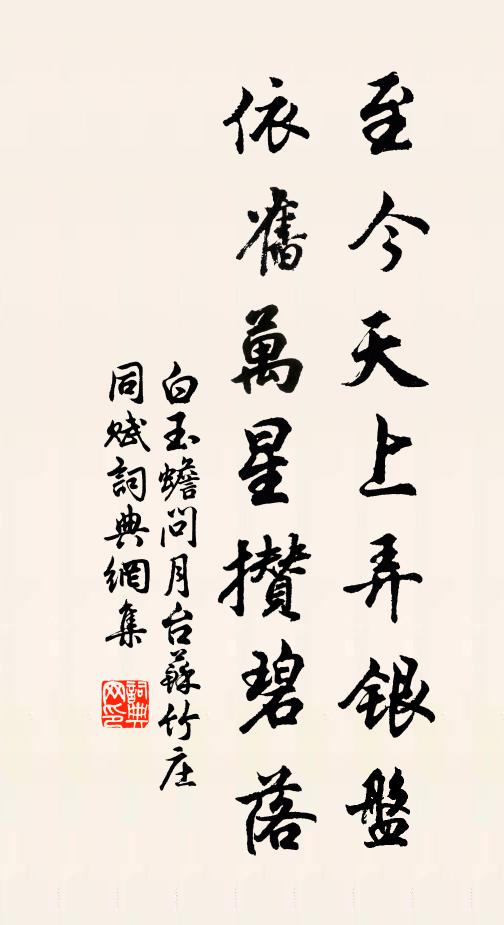 至今天上弄銀盤
依舊萬星攢碧落
白玉蟾問月台蘇竹庄
同賦詞典網集
詞典
网印